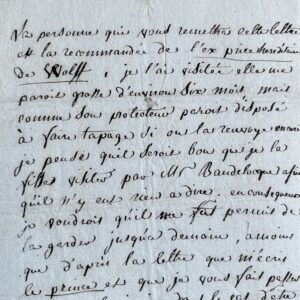 La personne qui vous remettra cette lettre
est la recommandée de l'ex prince héréditaire
de Wolff, je l'ai visitée elle me
paroit grosse d'environ six mois, mais
comme son protecteur paroit disposé
à faire tapage si on la renvoye encore
je pense qu'il seroit bon que je la
fisse visiter par Mr Baudelocque afin
qu'il n'y eut rien à dire. en conséquence
je voudrois qu'il me fut permis de
la garder jusqu'à demain, amoins
que d'après la lettre que m'écris
le prince et que je vous fais passer